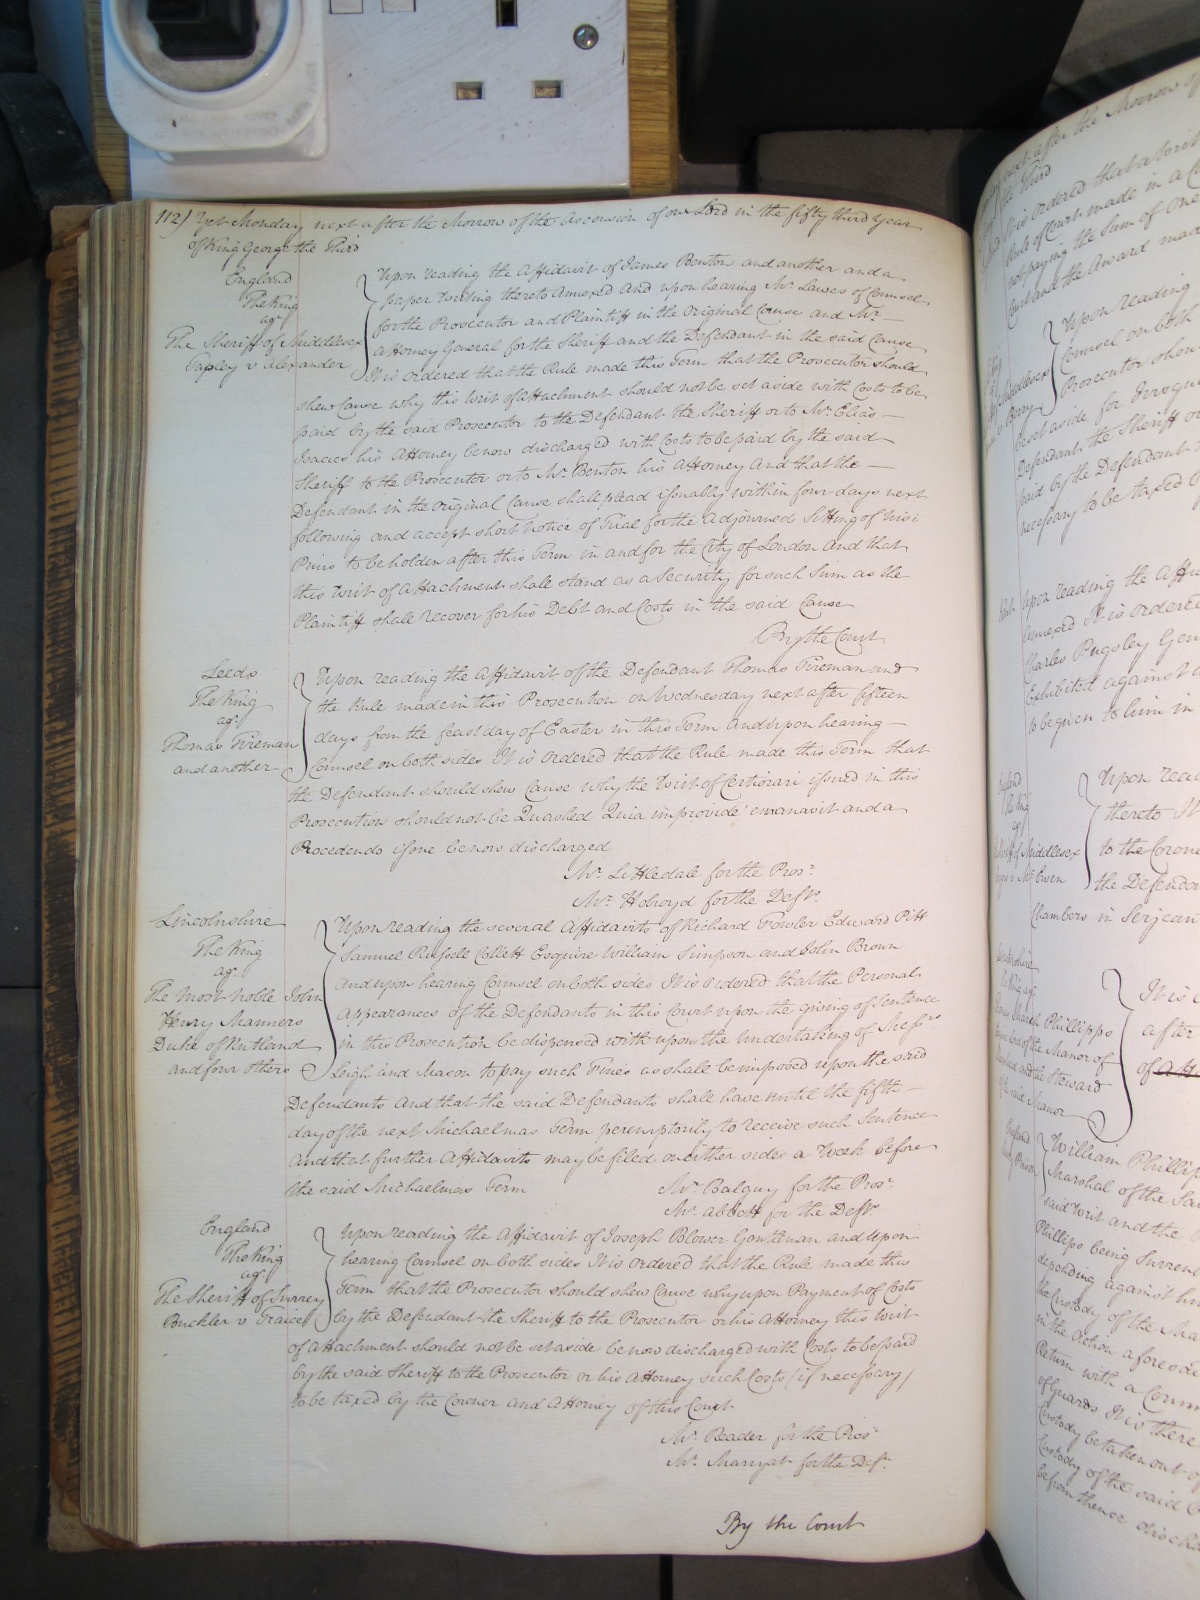 112) Yet Monday next after the Morrow of the Ascension of our Lord in the fifty third year
of King George the Third
England
The King
agt
The Sheriff of Middlesex
Tapley v Alexander
Upon reading the Affidavit of James Benton and another and a
paper writing thereto Annexed And upon hearing Mr. Lawes of Counsel
for the Prosecutor and Plaintiff in the Original Cause and Mr.
Attorney General for the Sheriff and the Defendant in the said Cause
It is ordered that the Rule made this Term that the Prosecutor should
shew Cause why this Writ of Attachment should not be set aside with Costs to be
paid by the said Prosecutor to the Defendant the Sheriff or to Mr. Elias
Isaacs his Attorney be now discharged with Costs to be paid by the said
Sheriff to the Prosecutor or to Mr. Benton his Attorney And that the
Defendant in the Original Cause shall plead issuably within four days next
following and accept short notice of Trial for the Adjourned Sitting of Nisi
Prius to be holden after this Term in and for the City of London And that
this Writ of Attachment shall stand as a Security for such Sum as the
Plaintiff shall recover for his Debt and Costs in the said Cause
By the Court
Leeds
The King
agt.
Thomas Fireman
and another
Upon reading the Affidavit of the Defendant Thomas Fireman and
the Rule made in this Prosecution on Wednesday next after fifteen
days from the feast day of Easter in this Term And upon hearing
Counsel on both sides It is Ordered that the Rule made this Term that
the Defendant should shew Cause why the Writ of Certiorari issued in this
Prosecution should not be Quashed Quia improvide emanavit and a
Procedendo issue be now discharged
Mr. Littledale for the Pros.
Mr. Holroyd for the Deft.
Lincolnshire
The King
agt.
The Most Noble John
Henry Manners
Duke of Rutland
and four others
Upon reading the several Affidavits of Richard Fowler Edward Pitt
Samuel Russell Collett Esquire William Simpson and John Brown
And upon hearing Counsel on both sides It is ordered that the Personal
Appearances of the Defendants in this Court upon the giving of Sentence
in this Prosecution be dispensed with upon the Undertaking of Messrs
Leigh and Mason to pay such Fines as shall be imposed upon the said
Defendants And that the said Defendants shall have until the fifth
day of the next Michaelmas Term peremptorily to receive such Sentence
And that further Affidavits may be filed on either sides a Week before
the said Michaelmas Term
Mr. Balguy for the Pros.
Mr. Abbott for the Deft.
England
The King
agt.
The Sheriff of Surrey
Buckler v
Upon reading the Affidavit of Joseph Blower Gentleman and Upon
hearing Counsel on both sides It is Ordered that the Rule made this
Term that the Prosecutor should shew Cause why upon Payment of Costs
by the Defendant the Sheriff to the Prosecutor or his Attorney this Writ
of Attachment should not be set aside be now discharged with Costs to be paid
by the said Sheriff to the Prosecutor or his Attorney such Costs (if necessary)
to be taxed by the Coroner and Attorney of this Court
Mr. Reader for the Pros.
Mr. Marryat for the Deft.
By the Court
next after the Morrow
the Third
It is Ordered that a Writ
Rule of Court made in a
not paying the Sum of One
Cost and the Award made
Middlesex
Upon reading
Counsel on both
Prosecutor shou
be set aside for Irregu
Defendant the Sheriff or
paid by the Defendant
necessary to be taxed
Upon reading the Affi
Annexed It is ordered
Charles Pugsley Gen
Exhibited against
to be given to him in
England
The King
agt
Middlesex
Upon read
thereto
to the Coroner
the Defenda
Chambers in Serjean
Phillipps
Manor of
and the Steward
said Manor
It is
after
of
William Phillip
Marshal of the Sa
said Writ and the
Phillips being Surren
depending against hi
the Custody of the Ma
in the Action aforesai
Return with a Comm
of Guards It is there
Custody be taken out of
Custody of the said
be from thence discha